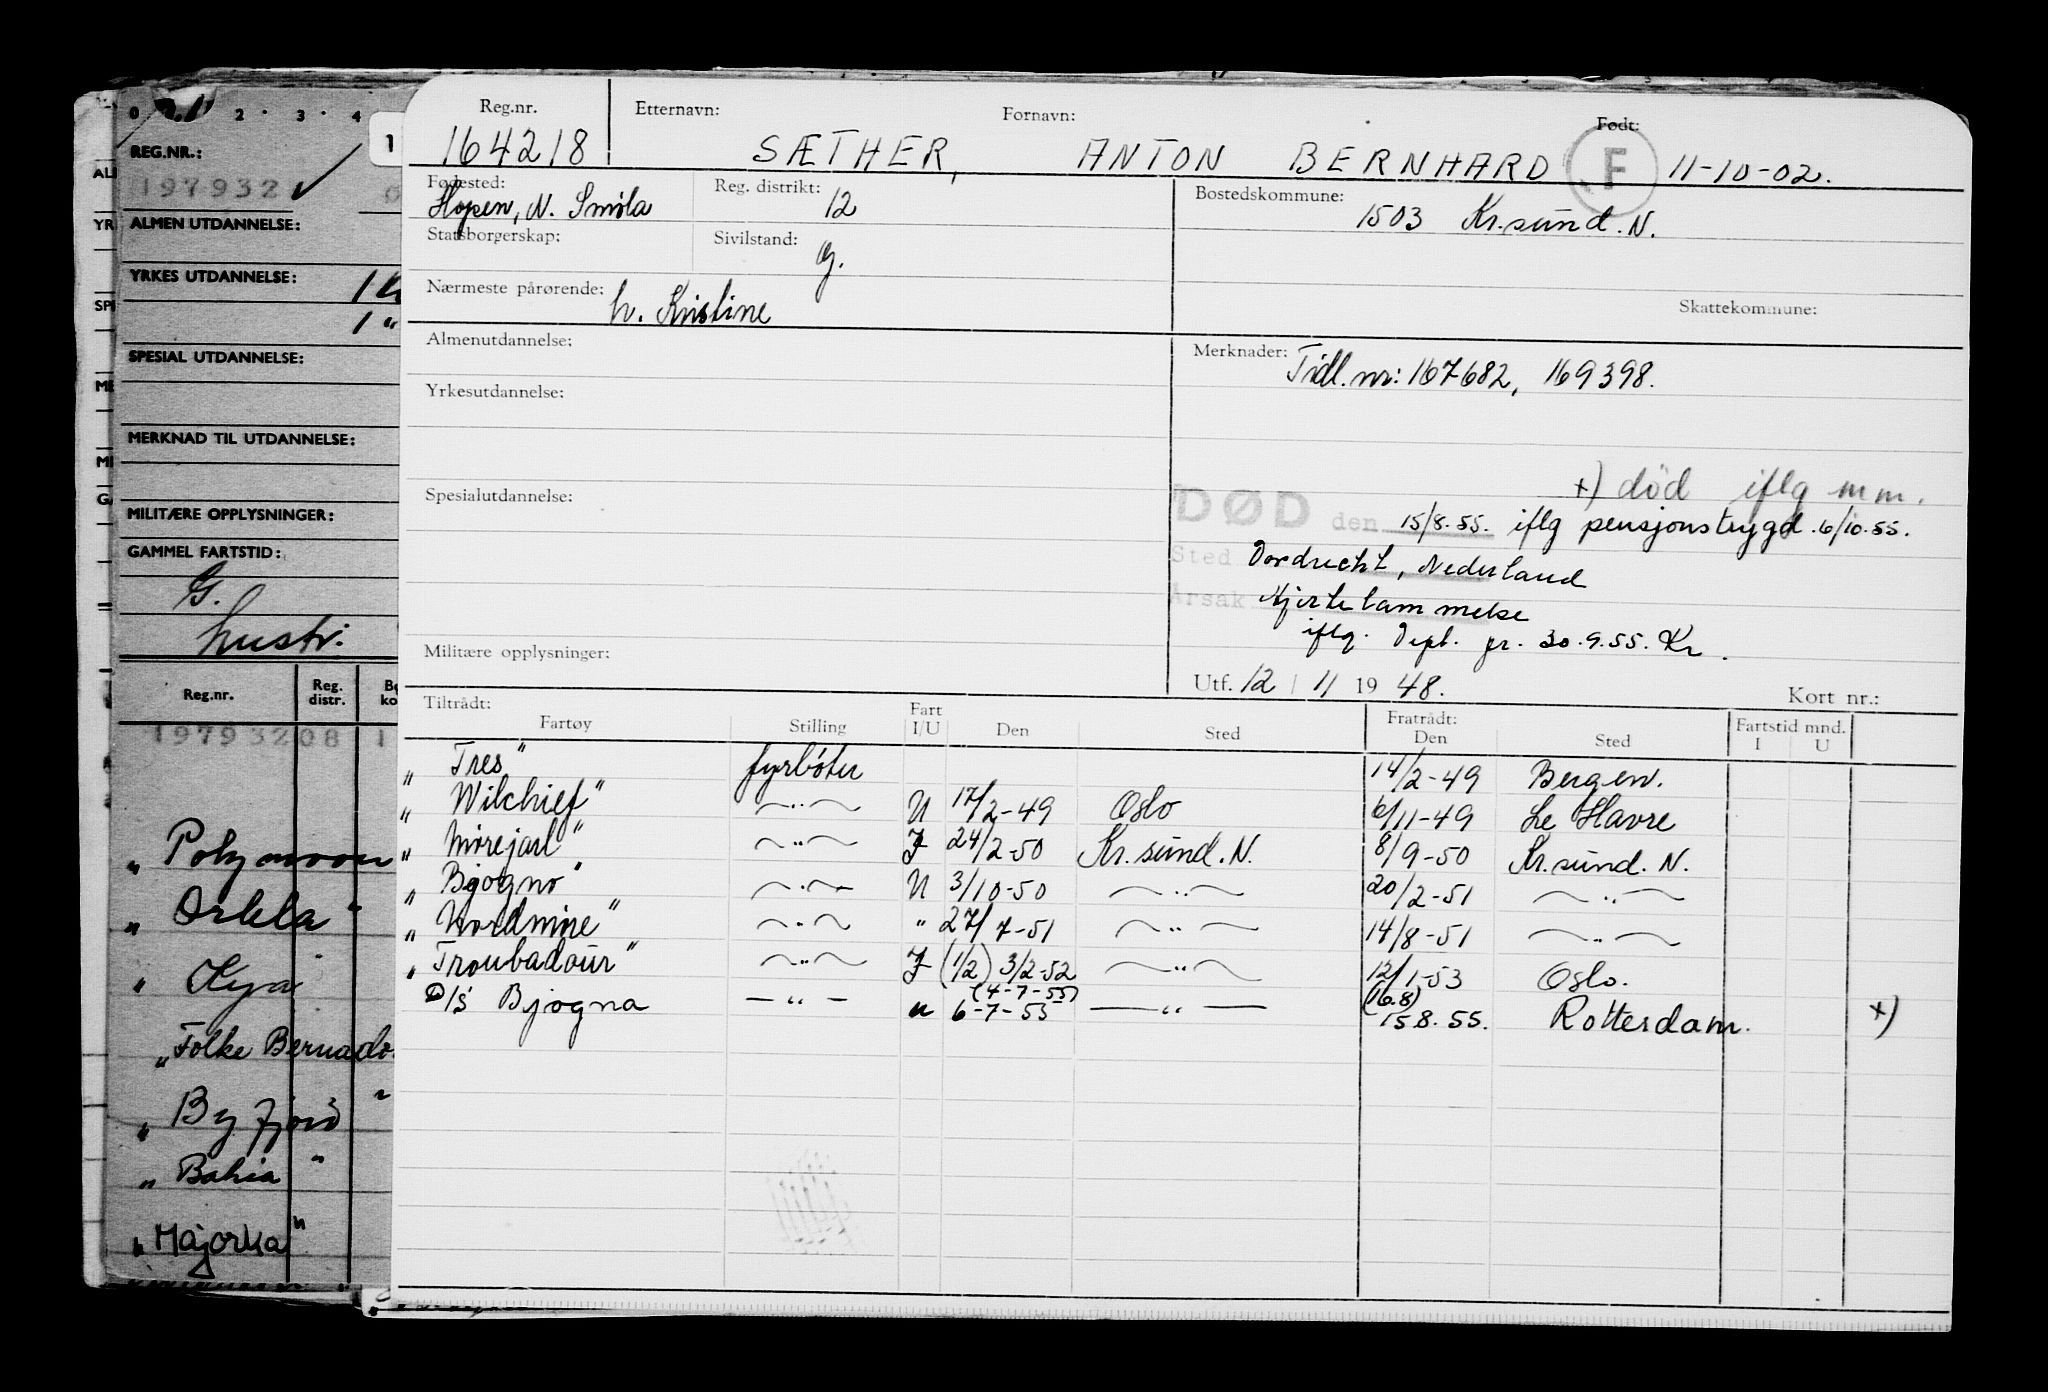 0 2 · 3 · 4
REG.NR.:
197932
ALMEN UTDANNELSE:
YRKES UTDANNELSE:
SPESIAL UTDANNELSE:
MERKNAD TIL UTDANNELSE:
MILITÆRE OPPLYSNINGER:
GAMMEL FARTSTID:
G.
hustr.
Reg.nr. Reg. distr.
19793208 1
" Polymoon
" Orkla "
" Kya
" Folke Bernado
" Byfjord "
" Bahia "
" Majorka "
Reg.nr. Etternavn: Fornavn: Født:
164218 SÆTHER, ANTON BERNHARD F 11-10-02.
Fødested: Reg. distrikt: Bostedskommune:
Hopen, N. Smøla 12 1503 Kr.sund. N.
Statsborgerskap: Sivilstand:
g.
Nærmeste pårørende: h. Kristine Skattekommune:
Almenutdannelse: Merknader: Tidl. nr: 167682, 169398.
Yrkesutdannelse:
+) död iflg mm.
Spesialutdannelse: DØD den 15/8.55. iflg pensjonstrygd. 6/10.55.
Sted Dordrecht, Nederland
Årsak Hjertelammelse
iflg. Dept. pr. 30.9.55. Kr.
Militære opplysninger:
Utf. 12 / 11 1948. Kort nr.:
Tiltrådt: Fartøy Stilling Fart I/U Den Sted Fratrådt: Den Sted Fartstid mnd. I U
" Tres" fyrbøter 14/2-49 Bergen.
" Wilchief" —"— U 17/2-49 Oslo 6/11-49 Le Havre
" Mørejarl" —"— I 24/2-50 Kr.sund. N. 8/9-50 Kr.sund. N.
" Bjøgno" —"— U 3/10-50 —"— 20/2-51 —"—
" Nordmøre" —"— " 27/7-51 —"— 14/8-51 —"—
" Troubadour" —"— I (1/2) 3/2-52 —"— 12/1-53 Oslo.
D/s Bjøgna —"— u (4-7-55) 6-7-55 —"— (16.8) 15.8.55. Rotterdam. +)